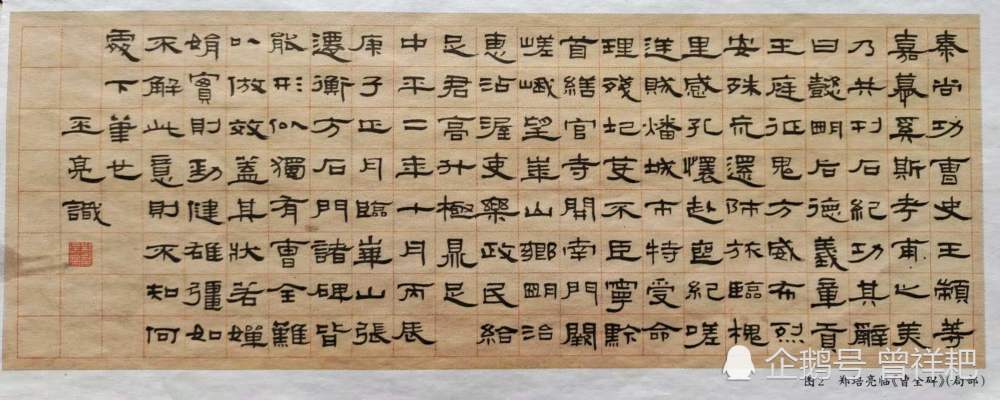 秦尚功曹史王顓等
嘉慕奚斯考甫之美
乃共刊石紀功其辭
曰懿明后德義章貢
王庭征鬼方威布烈
安殊荒還師旅臨槐
里感孔懷赴喪紀嗟
逆賊燔城市特受命
理殘圮芟不臣寧黔
首繕官寺開南門闕
嵯峨望華山鄉明治
惠沾渥吏樂政民給
足君高升極鼎足
中平二年十月丙辰
庚子正月臨華山張
遷衡方石門諸碑皆
能形似獨有曹全難
以倣效蓋其狀若嬋
娟實則勁健雄彊如
不解此意則不知何
處下筆也
丕亮識
企鹅号 曾祥耙
图2 郑培亮临《曹全碑》(局部)